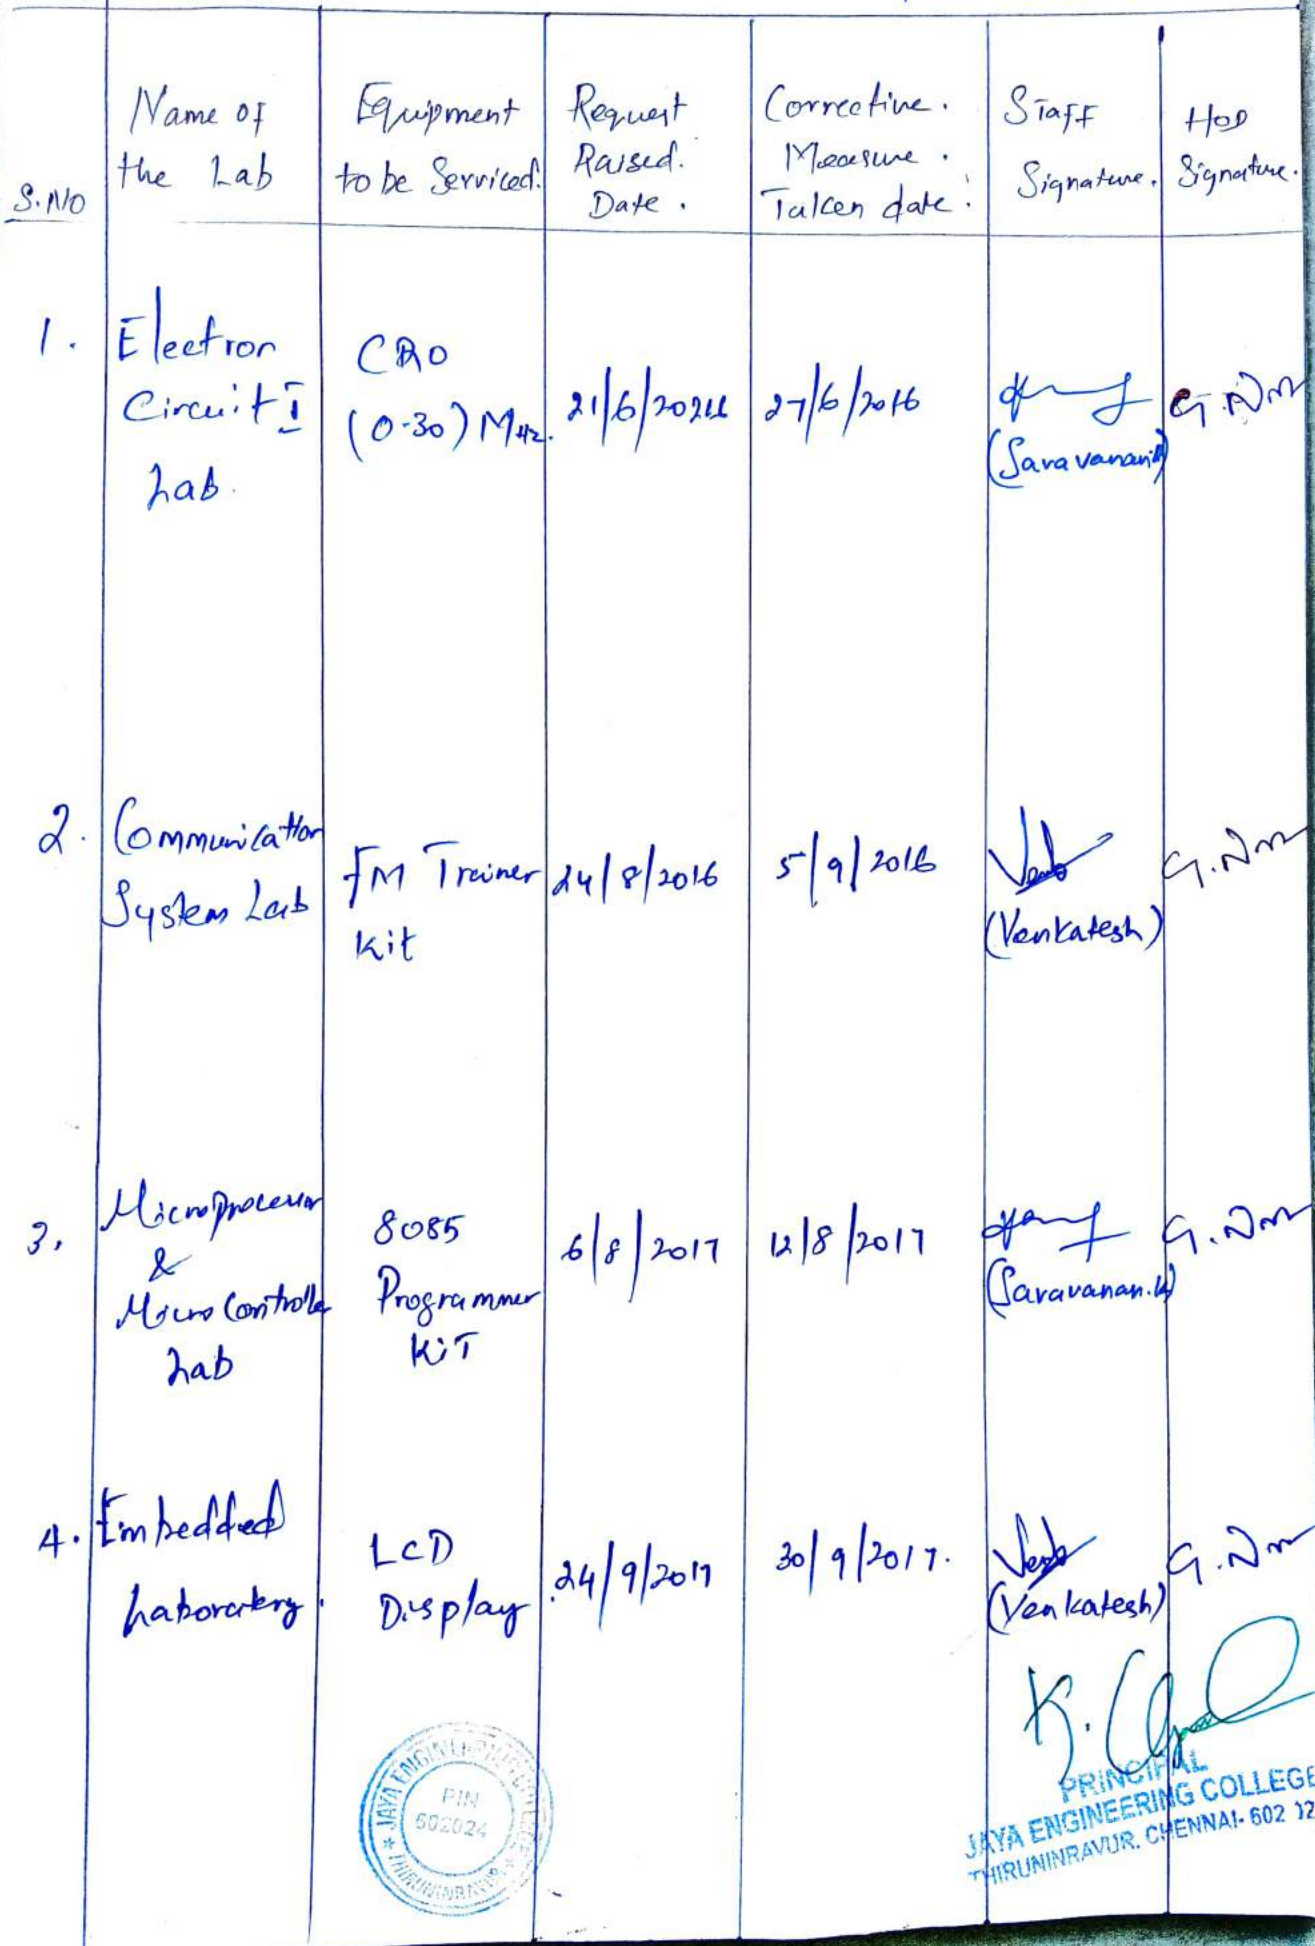 S.NO
Name of
the Lab
Equipment
to be Serviced.
Request
Raised.
Date.
Corrective.
Measure.
Taken date.
Staff
Signature.
HOD
Signature.
1.
Electron
Circuit I
Lab.
CRO
(0-30) MHz.
27/6/2016
(Saravanan.K)
2.
Communication
System Lab
FM Trainer
Kit
24/8/2016
5/9/2016
(Venkatesh)
3.
Microprocessor
&
Micro Controller
Lab
8085
Programmer
KiT
6/8/2017
12/8/2017
(Saravanan.K)
4.
Embedded
Laboratory.
LCD
Display.
24/9/2017
30/9/2017.
(Venkatesh)
JAYA ENGINEERING COLLEGE
PIN
602024
THIRUNINRAVUR
PRINCIPAL
JAYA ENGINEERING COLLEGE
THIRUNINRAVUR. CHENNAI- 602